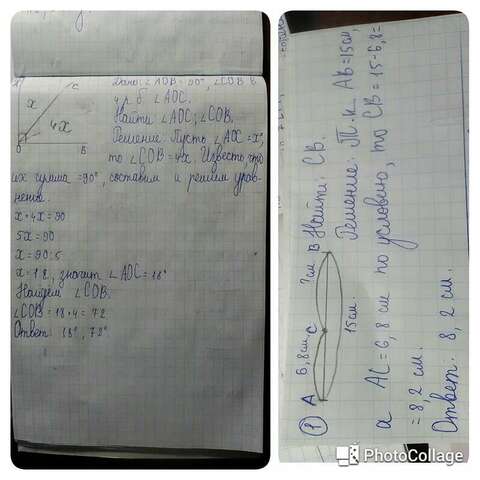 A
C
x
4x
O
B
Дано: ∠AOB = 90°, ∠COB в
4 р. б. ∠AOC.
Найти ∠AOC; ∠COB.
Решение: Пусть ∠AOC = x°,
то ∠COB = 4x. Известно, что
их сумма = 90°, составим и решим урав-
нение.
x+4x=90
5x=90
x=90:5
x=18, значит ∠AOC=18°
Найдем ∠COB.
∠COB=18•4=72
Ответ: 18°, 72°
①
A
6,8см
C
?см
B
15см
Найти: CB.
Решение: Т.к AB=15см,
а AC=6,8 см по условию, то CB=15-6,8=
=8,2 см.
Ответ: 8,2 см.
PhotoCollage